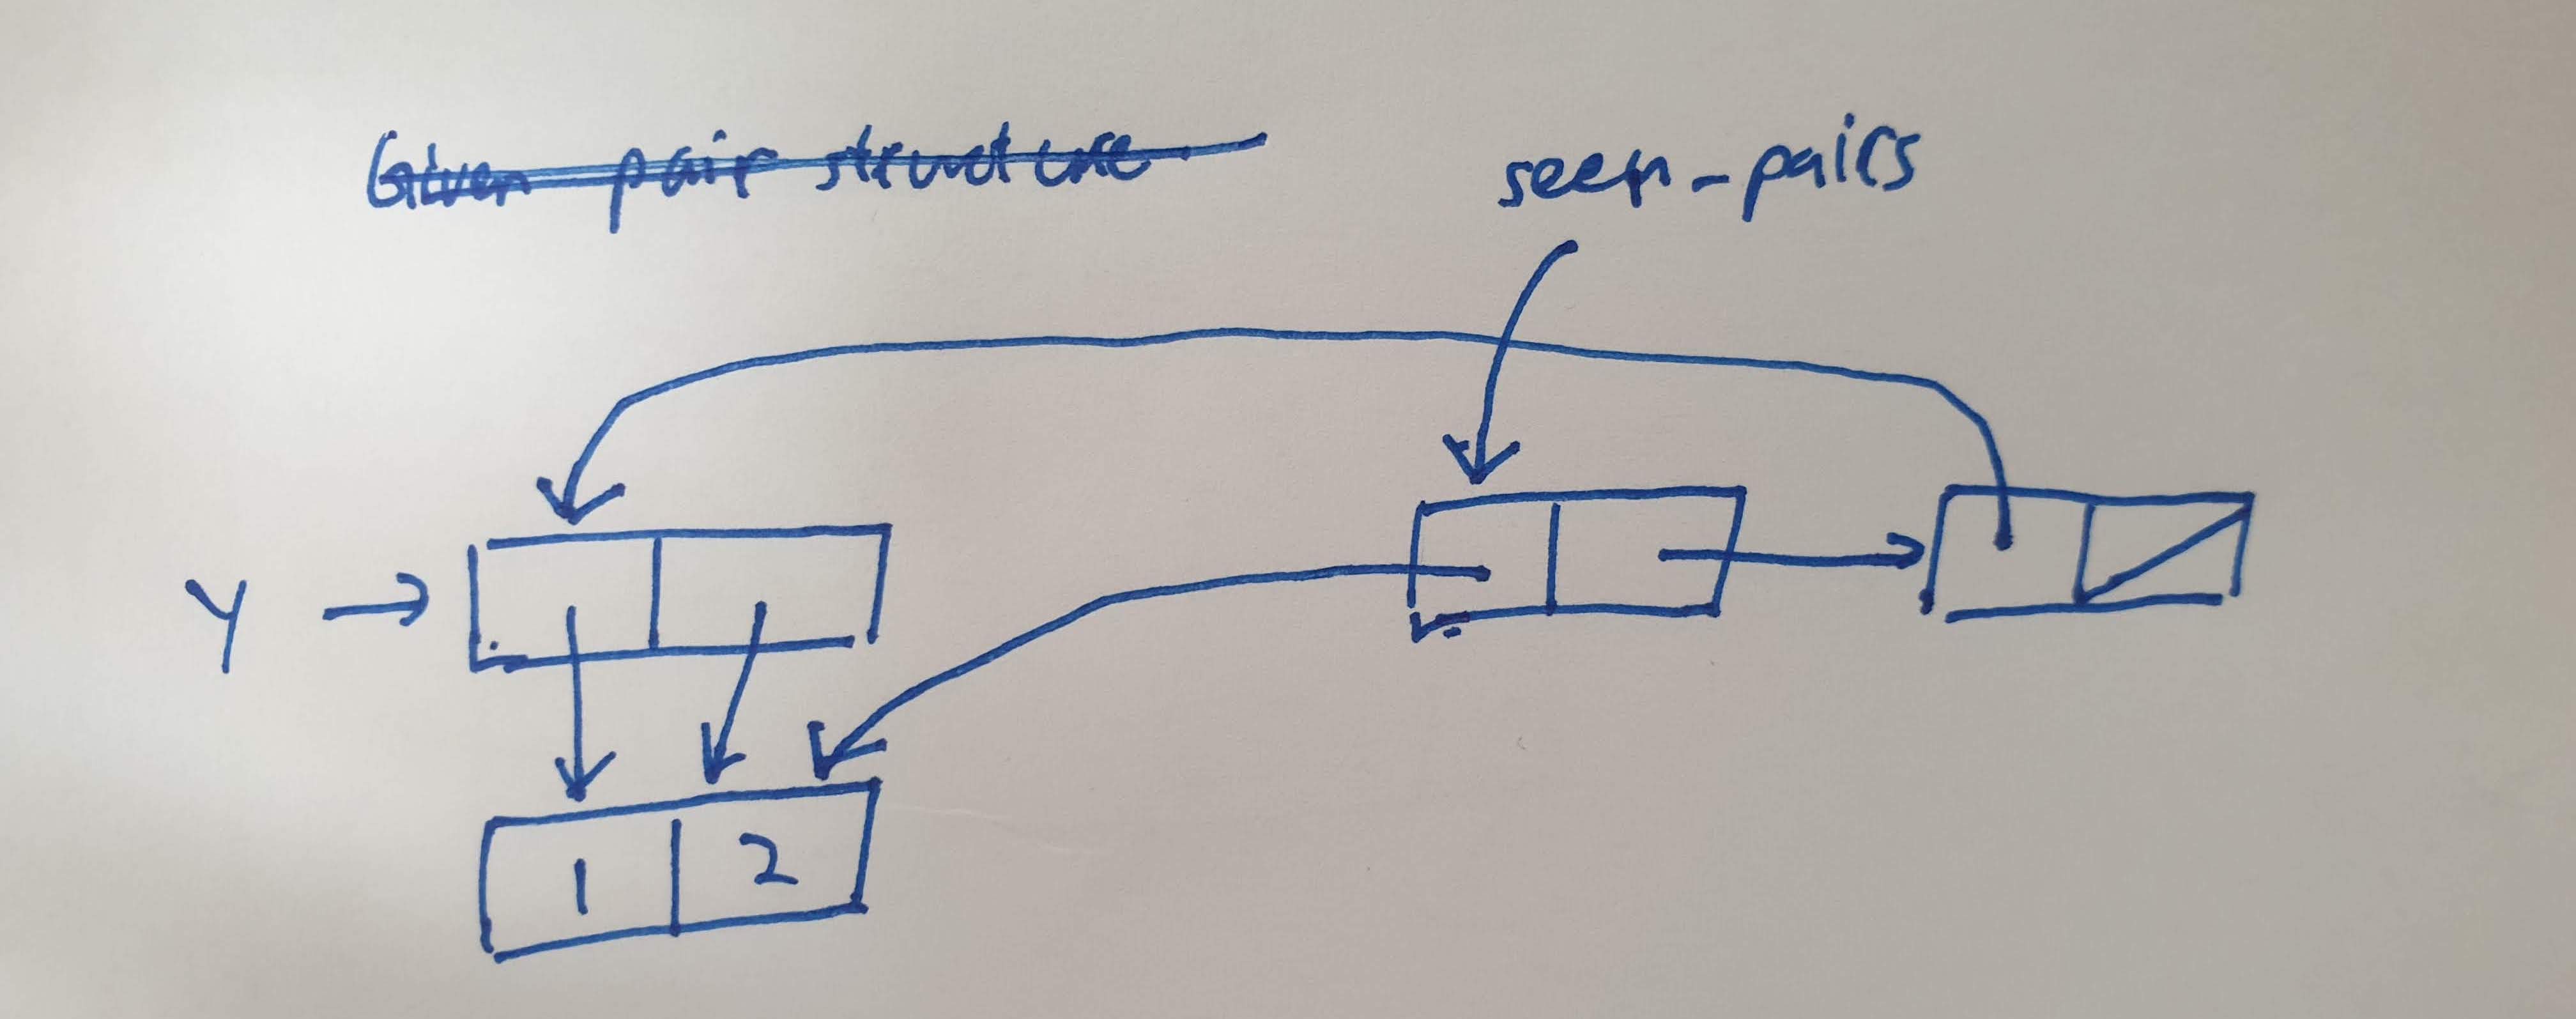 Given pair structure.
seen-pairs
Y
1 2